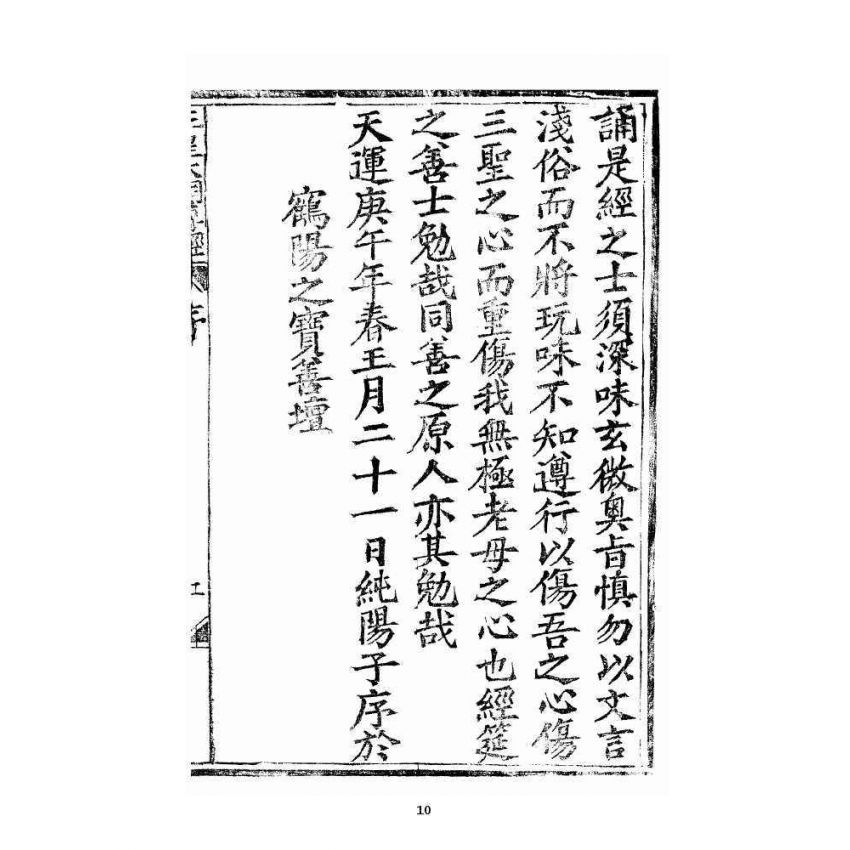 誦是經之士須深味玄微奧旨慎勿以文言
淺俗而不將玩味不知遵行以傷吾之心傷
三聖之心而重傷我無極老母之心也經筵
之善士勉哉同善之原人亦其勉哉
天運庚午年春王月二十一日純陽子序於
鶴陽之寶善壇
10